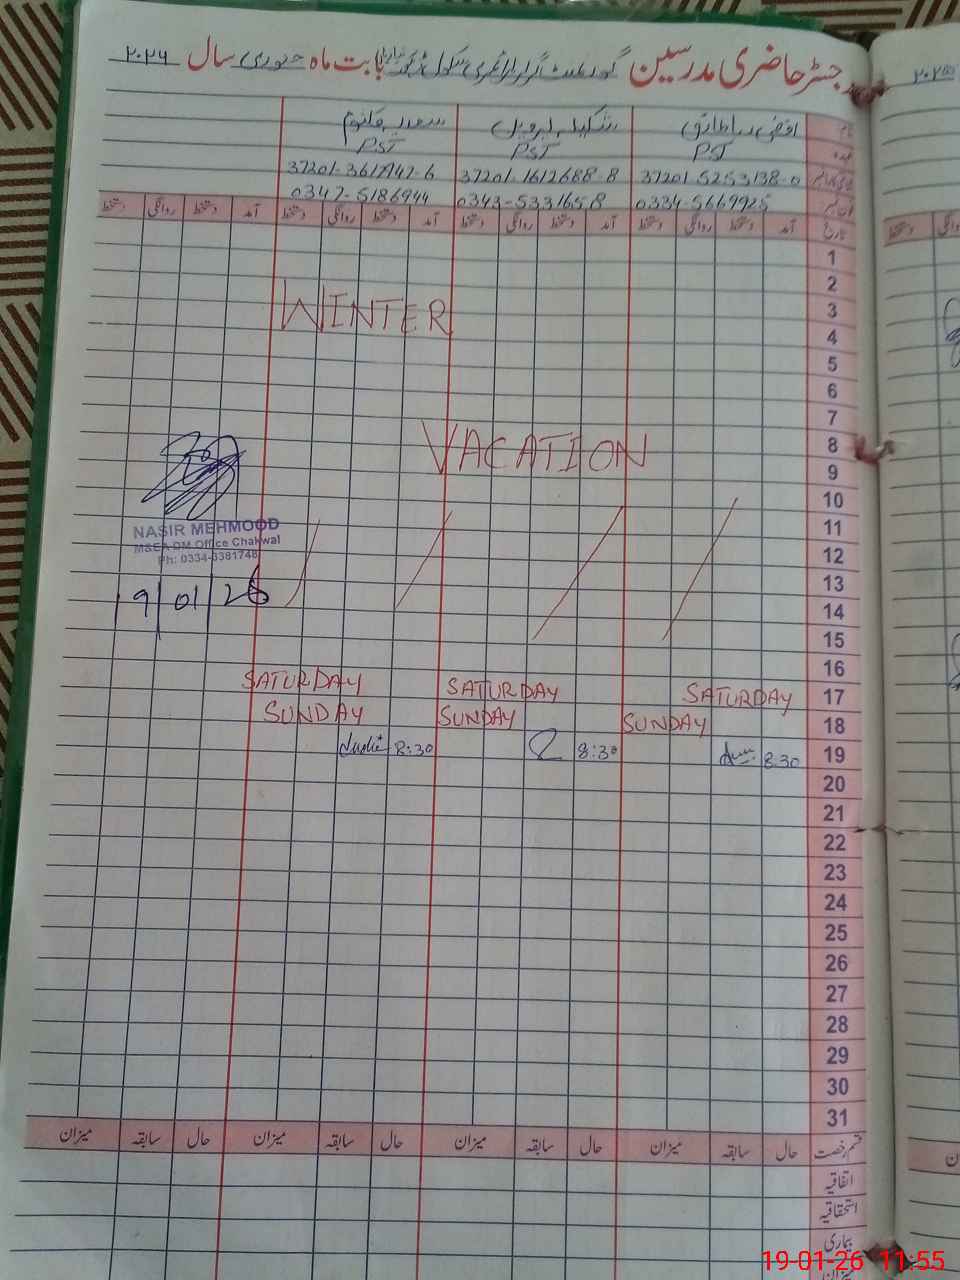 رجسٹر حاضری مدرسین گورنمنٹ گرلز پرائمری سکول بابت ماہ جنوری سال ۲۰۲۶
نام اقصیٰ شکیلہ پروین سعدیہ
عہدہ PST PST PST
37201-5253138-0 37201-1612688-8 37201-3617947-6
0334-5669925 0343-5331658 0347-5186944
تاریخ آمد دستخط روانگی دستخط آمد دستخط روانگی دستخط آمد دستخط روانگی دستخط آمد دستخط روانگی دستخط
1
2
WINTER 3
4
5
6
7
VACATION 8
9
10
NASIR MEHMOOD 11
M&EA DM Office Chakwal
Ph: 0334-3381748 12
13
19/01/26 14
15
16
SATURDAY SATURDAY SATURDAY 17
SUNDAY SUNDAY SUNDAY 18
8:30 8:30 8:30 19
20
21
22
23
24
25
26
27
28
29
30
31
قسم رخصت حال سابقہ میزان حال سابقہ میزان حال سابقہ میزان حال سابقہ میزان
اتفاقیہ
استحقاقیہ
بیماری
میزان
19-01-26 11:55